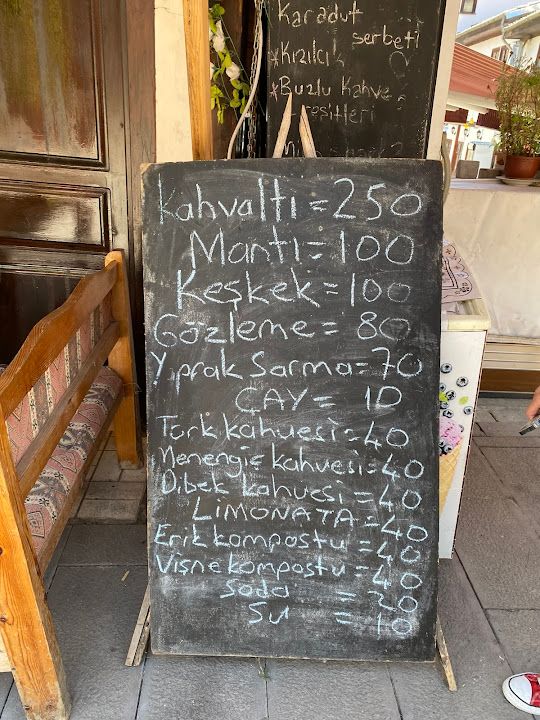 Karadut
şerbeti
*Kızılcı
*Buzlu Kahve
eşitleri
Kahvaltı = 250
Mantı = 100
Keşkek = 100
Gözleme = 80
Yaprak Sarma = 70
ÇAY = 10
Türk kahvesi = 40
Menengiç kahvesi = 40
Dibek kahvesi = 40
LİMONATA = 40
Erik kompostu = 40
Vişne kompostu = 40
Soda = 20
Su = 10